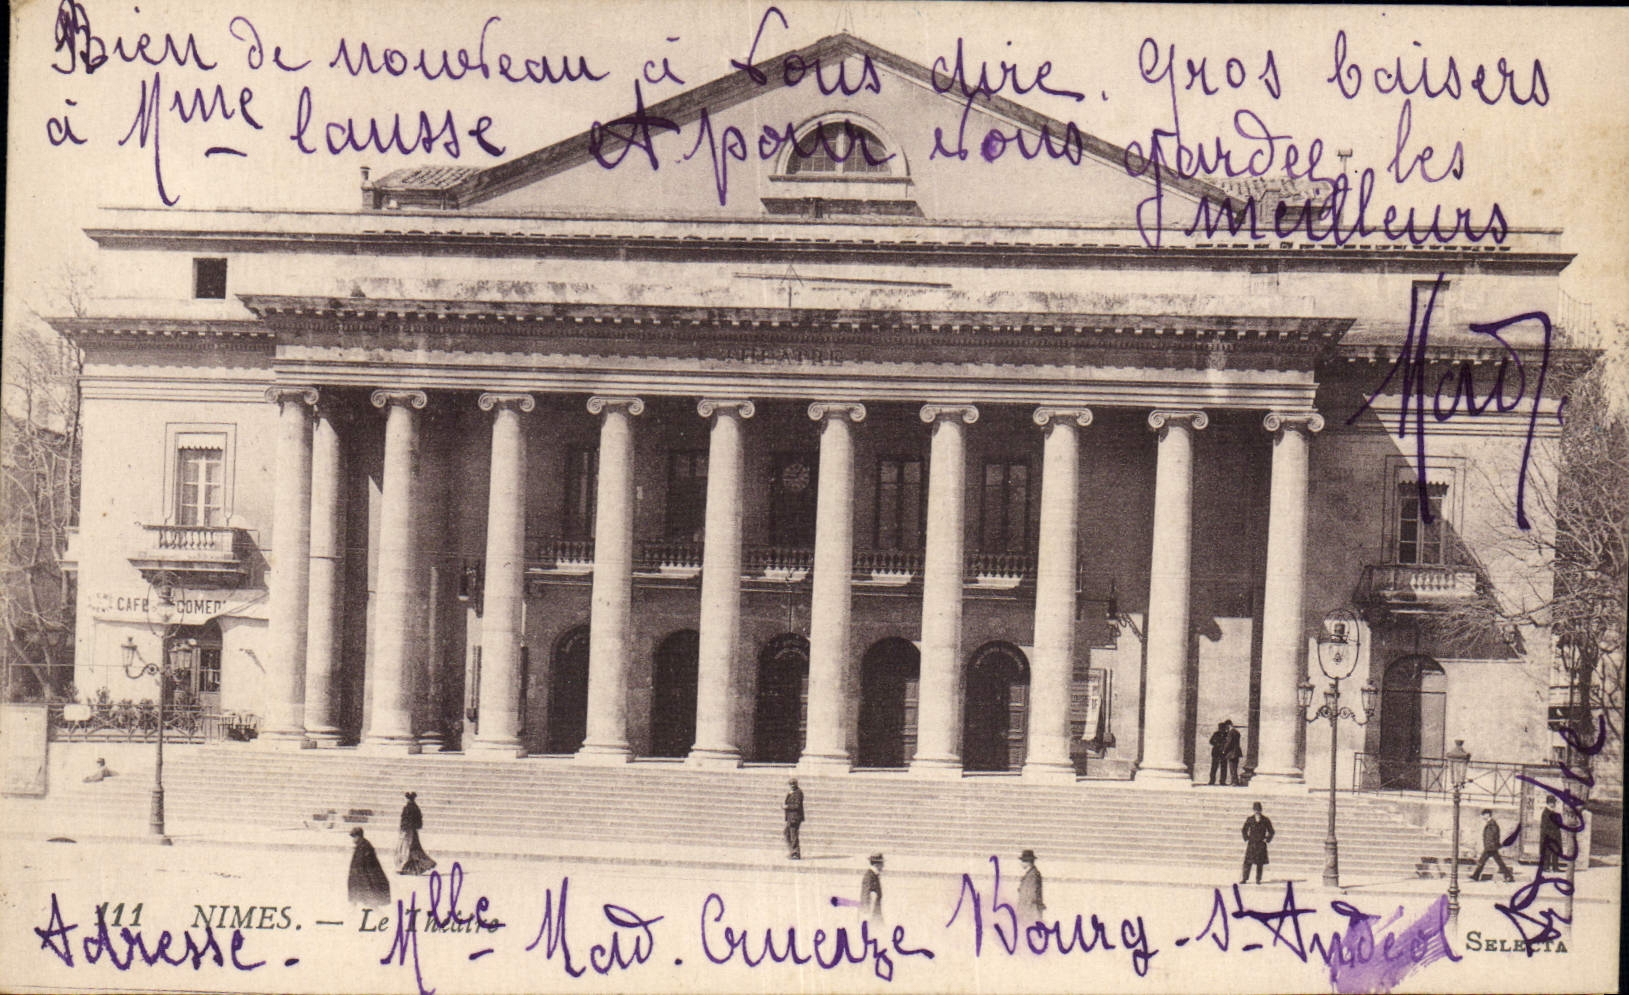 Bien de nouveau à vous dire. Gros baisers
à Mme lausse et pour vous gardez les
meilleurs
Mad.
THEATRE
CAFE COMED
111 NIMES. — Le Théâtre
Adresse. Mlle Mad. Crueize Bourg-St-Andéol
Ardèche
SELECTA